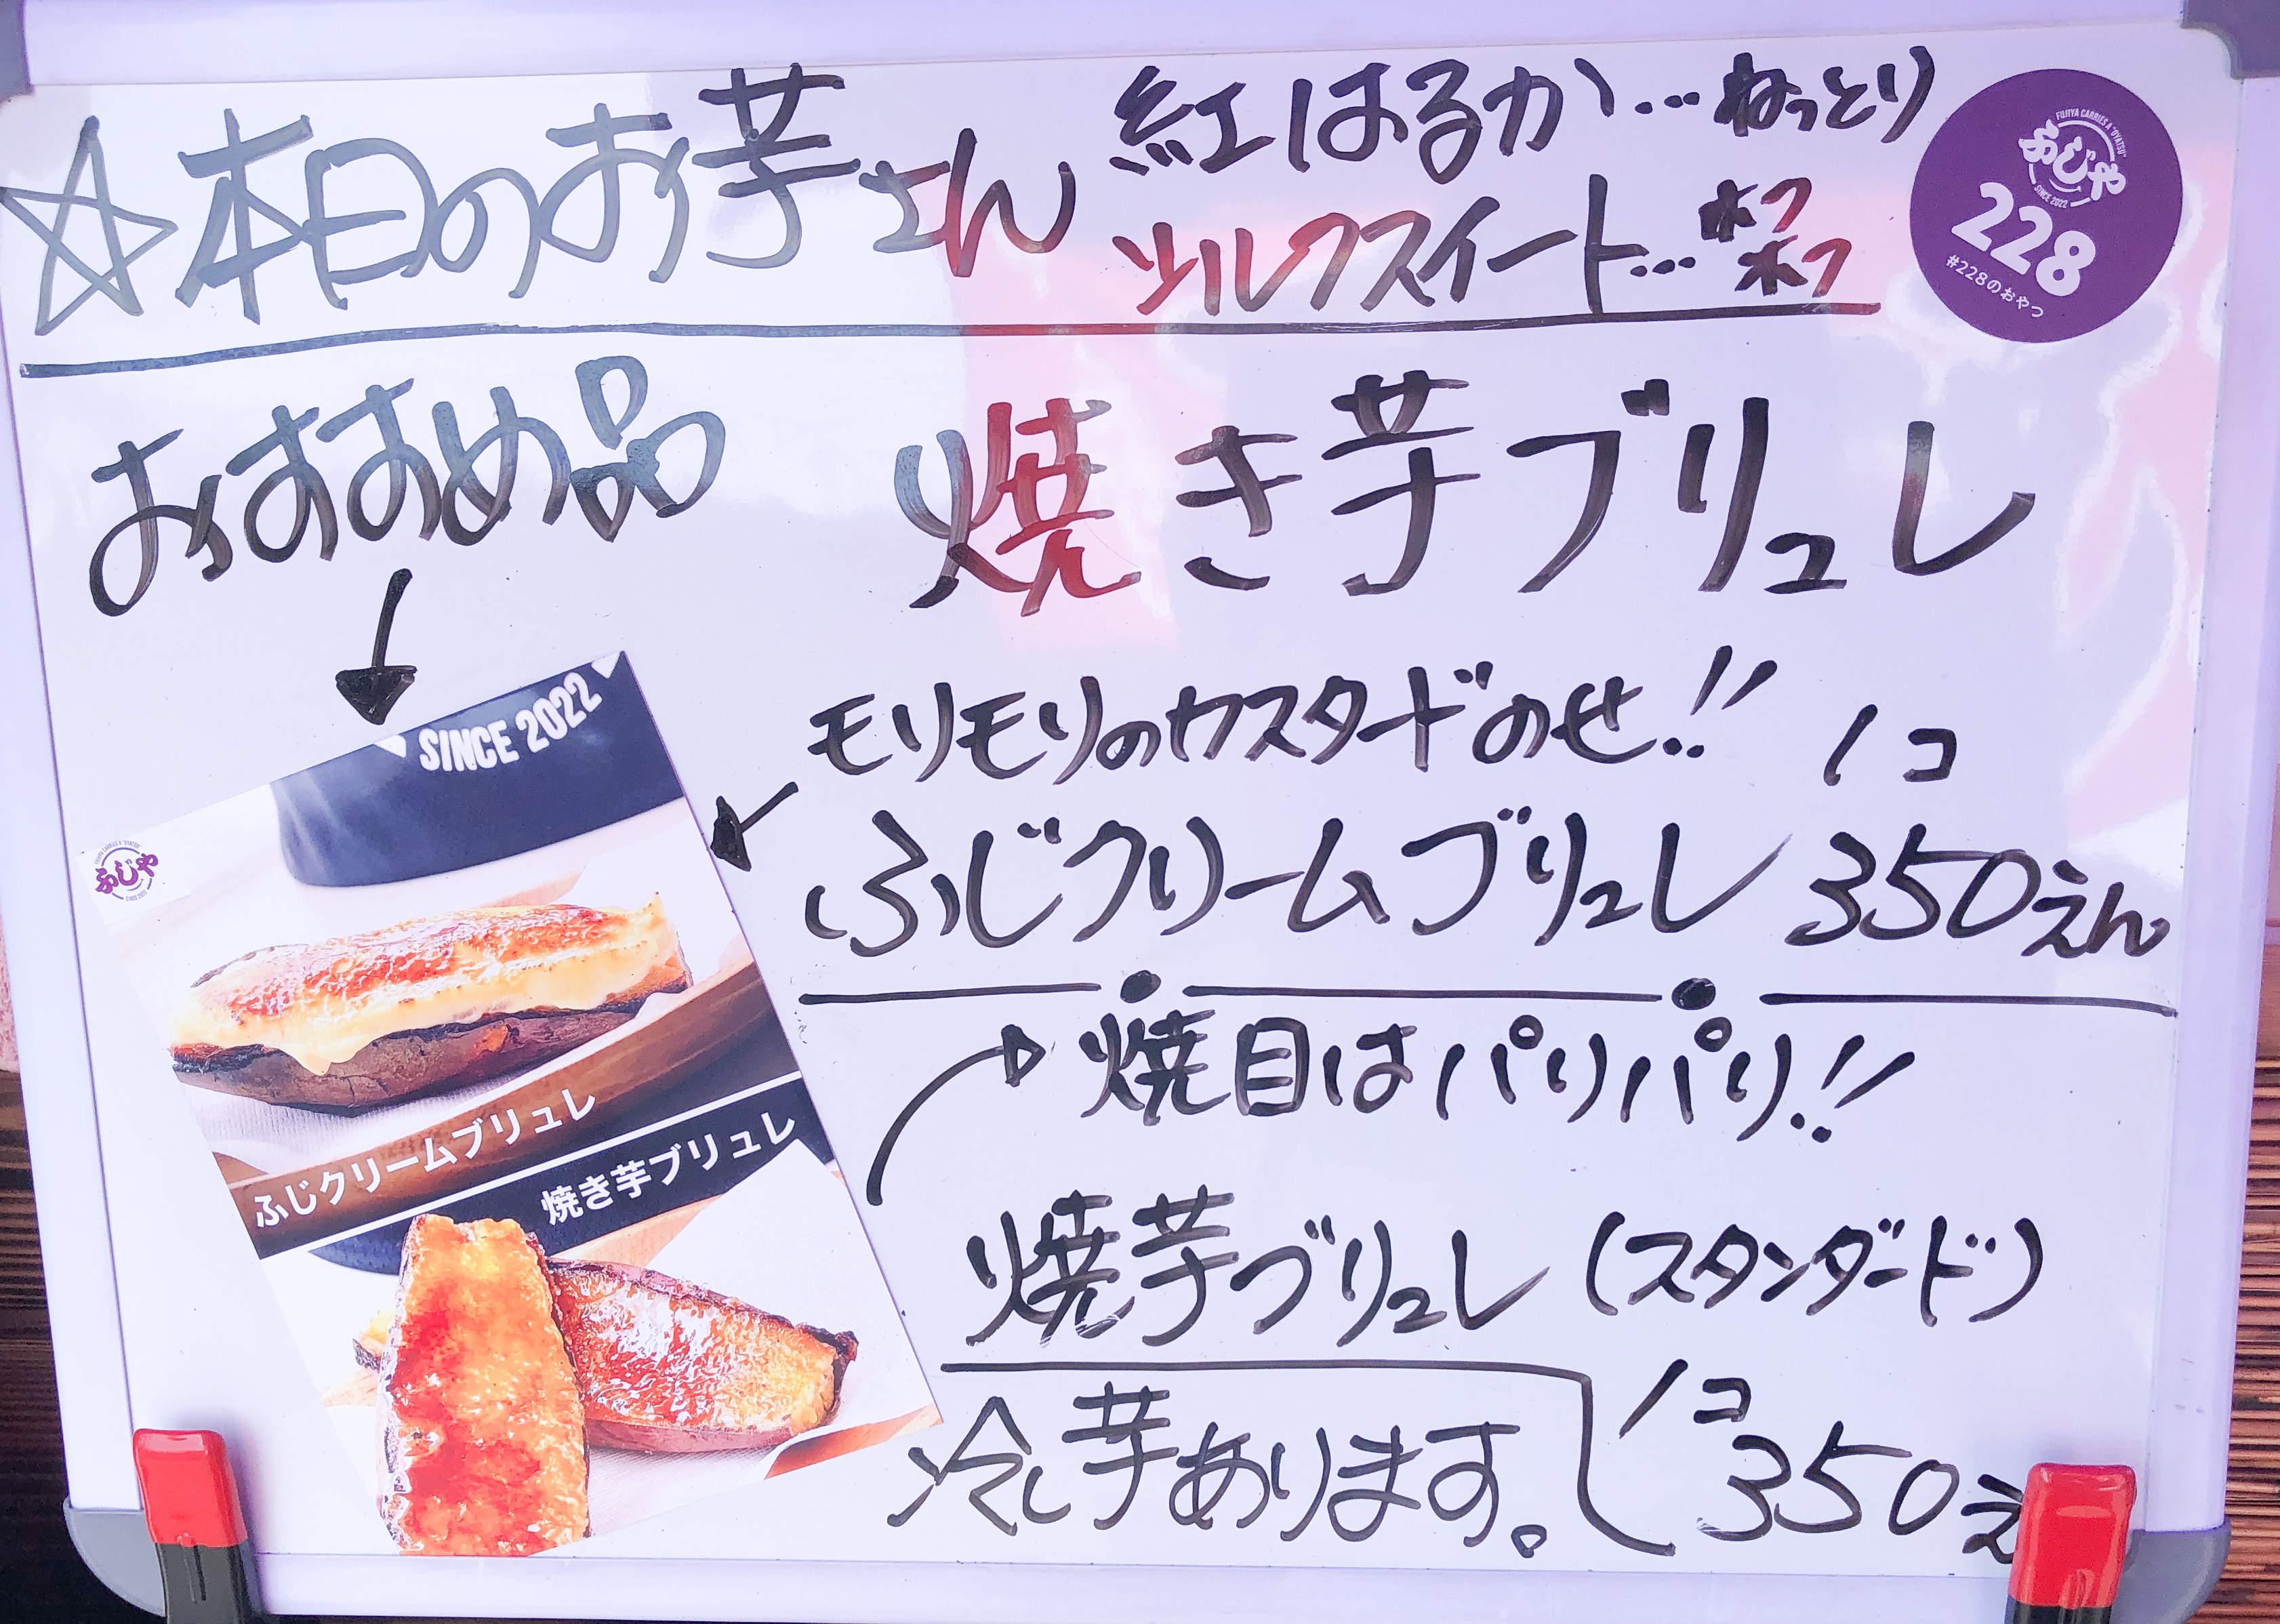 ☆本日のお芋さん
紅はるか…ねっとり
シルクスイート…ホクホク
FUJIYA CARRIES A "OYATSU"
ふじや
SINCE 2022
228
#228のおやつ
おすすめ品
焼き芋ブリュレ
モリモリのカスタードのせ!!
ふじクリームブリュレ
1コ
350えん
焼目はパリパリ!!
焼芋ブリュレ (スタンダード)
1コ
350え
冷し芋あります。
SINCE 2022
FUJIYA CARRIES A "OYATSU"
ふじや
SINCE 2022
ふじクリームブリュレ
焼き芋ブリュレ